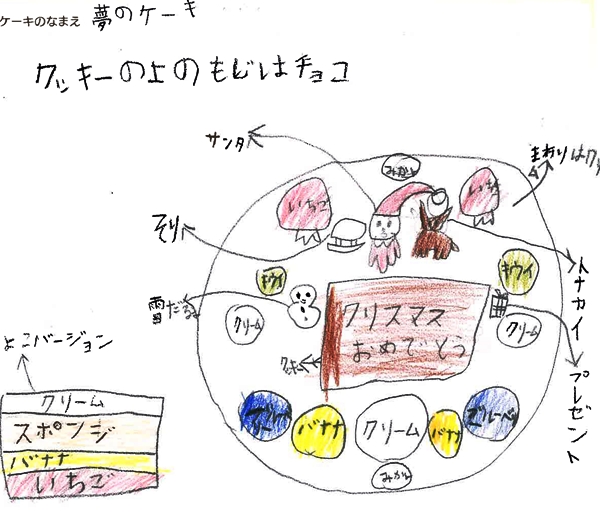 ケーキのなまえ 夢のケーキ
クッキーの上のもじはチョコ
サンタ
みかん
まわりはクリ
いちご
いちご
そり
キウイ
キウイ
トナカイ
雪だるま
クリーム
クリスマス
おめでとう
クリーム
クッキー
プレゼント
よこバージョン
クリーム
スポンジ
バナナ
いちご
ブルーベリー
バナナ
クリーム
バナナ
ブルーベリー
みかん